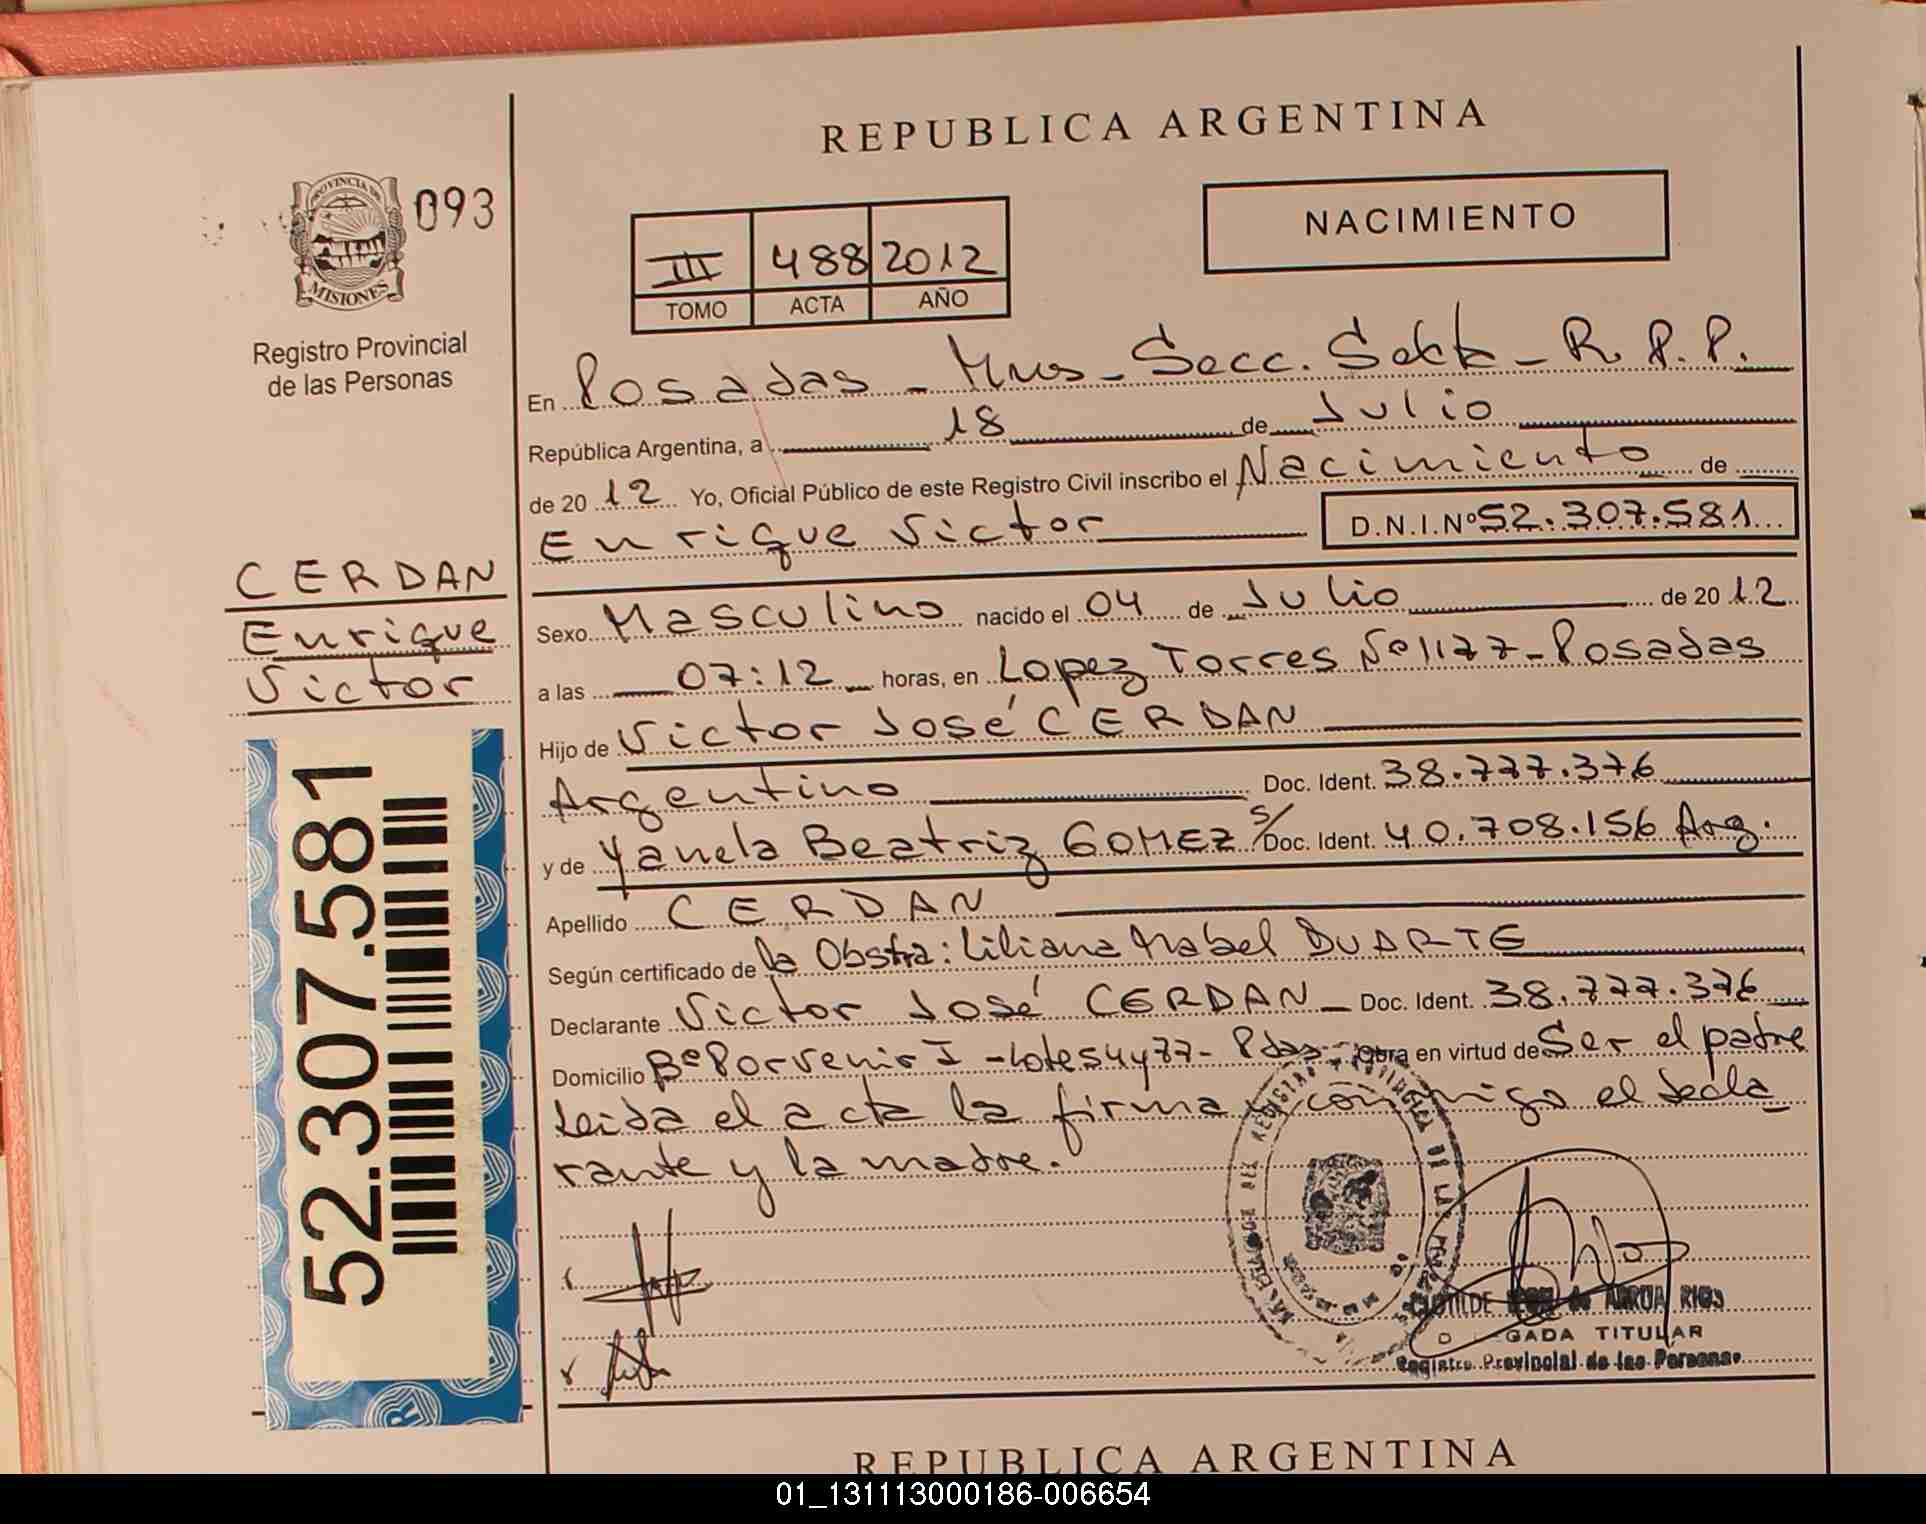 REPUBLICA ARGENTINA
PROVINCIA DE
MISIONES
093
Registro Provincial
de las Personas
NACIMIENTO
III 488 2012
TOMO ACTA AÑO
En Posadas - Mnes - Secc. Sexta - R.P.P.
República Argentina, a 18 de Julio
de 2012 Yo, Oficial Público de este Registro Civil inscribo el Nacimiento de
Enrique Victor D.N.I.Nº 52.307.581
CERDAN
Enrique
Victor
Sexo Masculino nacido el 04 de Julio de 2012
a las 07:12 horas, en Lopez Torres Nº 1177 - Posadas
Hijo de Victor José CERDAN
Argentino Doc. Ident. 38.777.376
y de Yanela Beatriz GOMEZ s/ Doc. Ident. 40.708.156 Arg.
Apellido CERDAN
Según certificado de la Obstra: Liliana Mabel DUARTE
Declarante Victor José CERDAN - Doc. Ident. 38.777.376
Domicilio Bº Porvenir I - Lotes 4 y 77 - Pdas. Obra en virtud de Ser el padre
Leida el acta la firma conmigo el decla
rante y la madre.
52.307.581
CLOTILDE de ARRUA RIOS
DELEGADA TITULAR
Registro Provincial de las Personas
REPUBLICA ARGENTINA
01_131113000186-006654